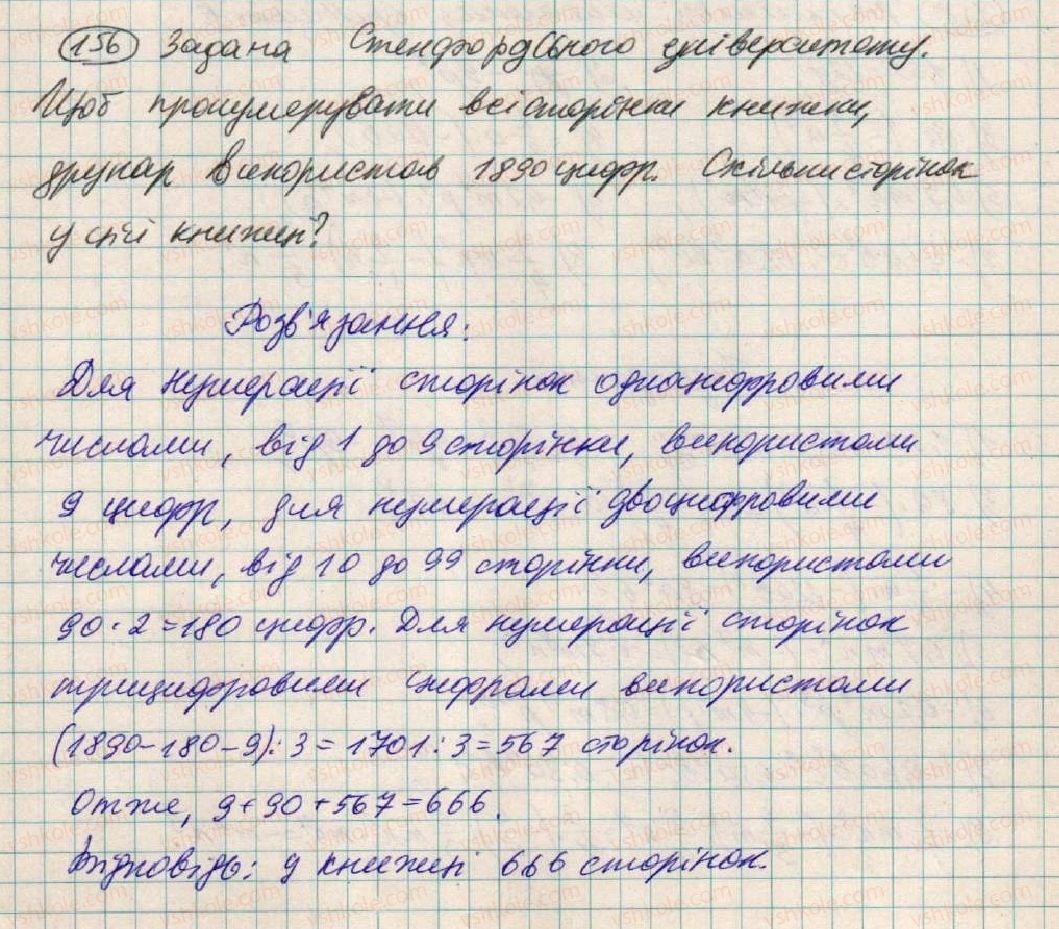 156 Задача Стенфордського університету.
Щоб пронумерувати всі сторінки книжки,
друкар використав 1890 цифр. Скільки сторінок
у цій книжці?
Розв'язання:
Для нумерації сторінок одноцифровими
числами, від 1 до 9 сторінки, використали
9 цифр, для нумерації двоцифровими
числами, від 10 до 99 сторінки, використали
90·2=180 цифр. Для нумерації сторінок
трицифровими цифрами використали
(1890-180-9):3=1701:3=567 сторінок.
Отже, 9+90+567=666.
Відповідь: у книжці 666 сторінок.